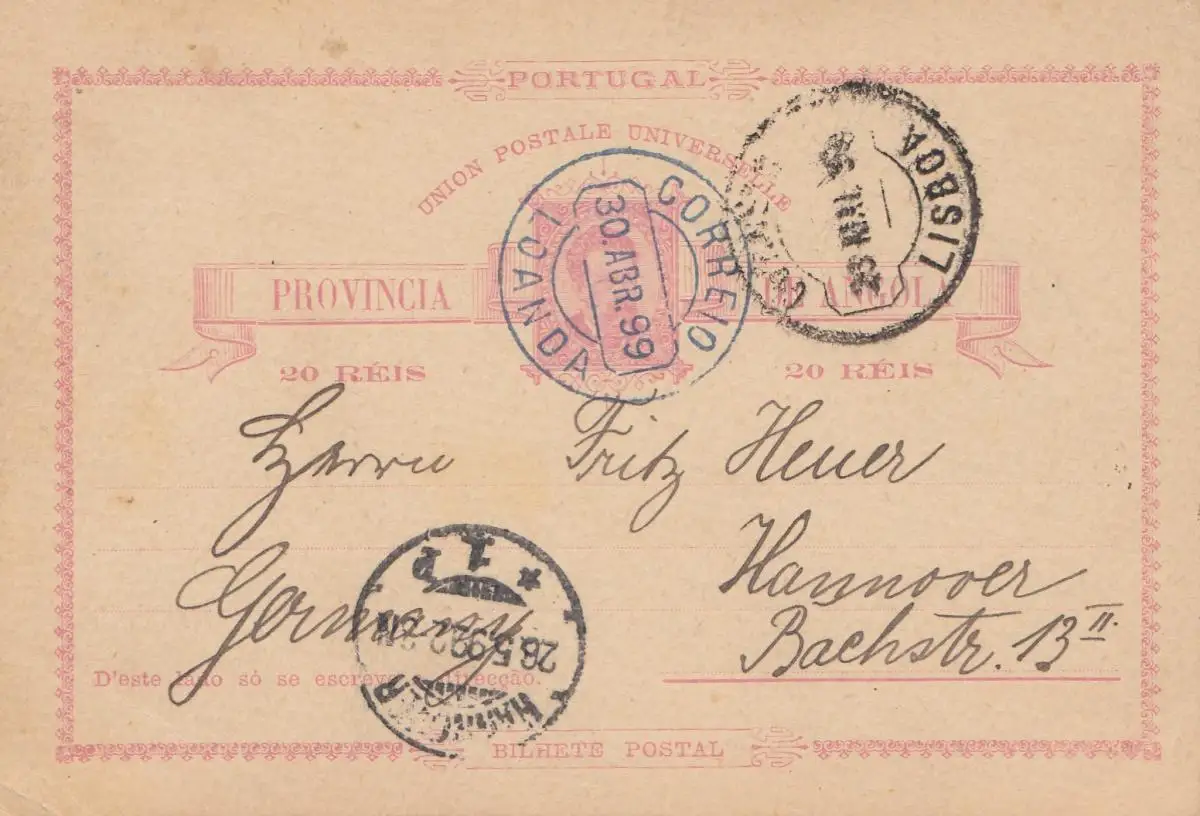 PORTUGAL
UNION POSTALE UNIVERSELLE
CORREIO
30.ABR.99
LOANDA
LISBOA
PROVINCIA DE ANGOLA
20 RÉIS 20 RÉIS
Herrn Fritz Heuer
Hannover
Germany
Bachstr. 13 II.
* 1 P
26.5.99
HANNOVER
D'este lado só se escreve a direcção.
BILHETE POSTAL